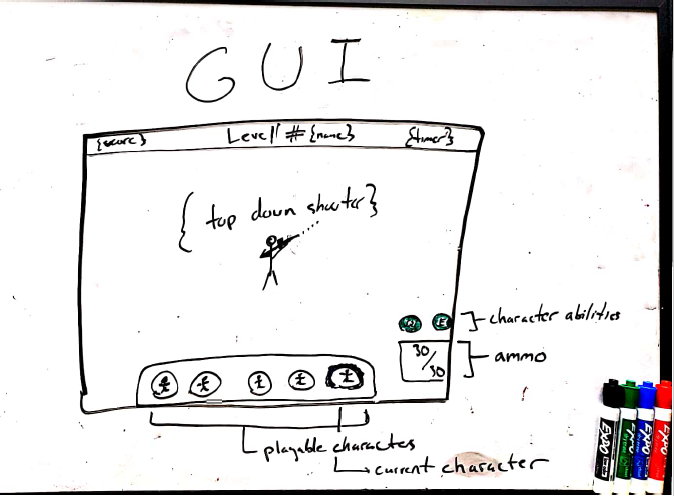 GUI
{score} Level # {name} {timer}
{ top down shooter }
E
character abilities
30/30
ammo
playable characters
current character
EXPO
EXPO
EXPO
EXPO